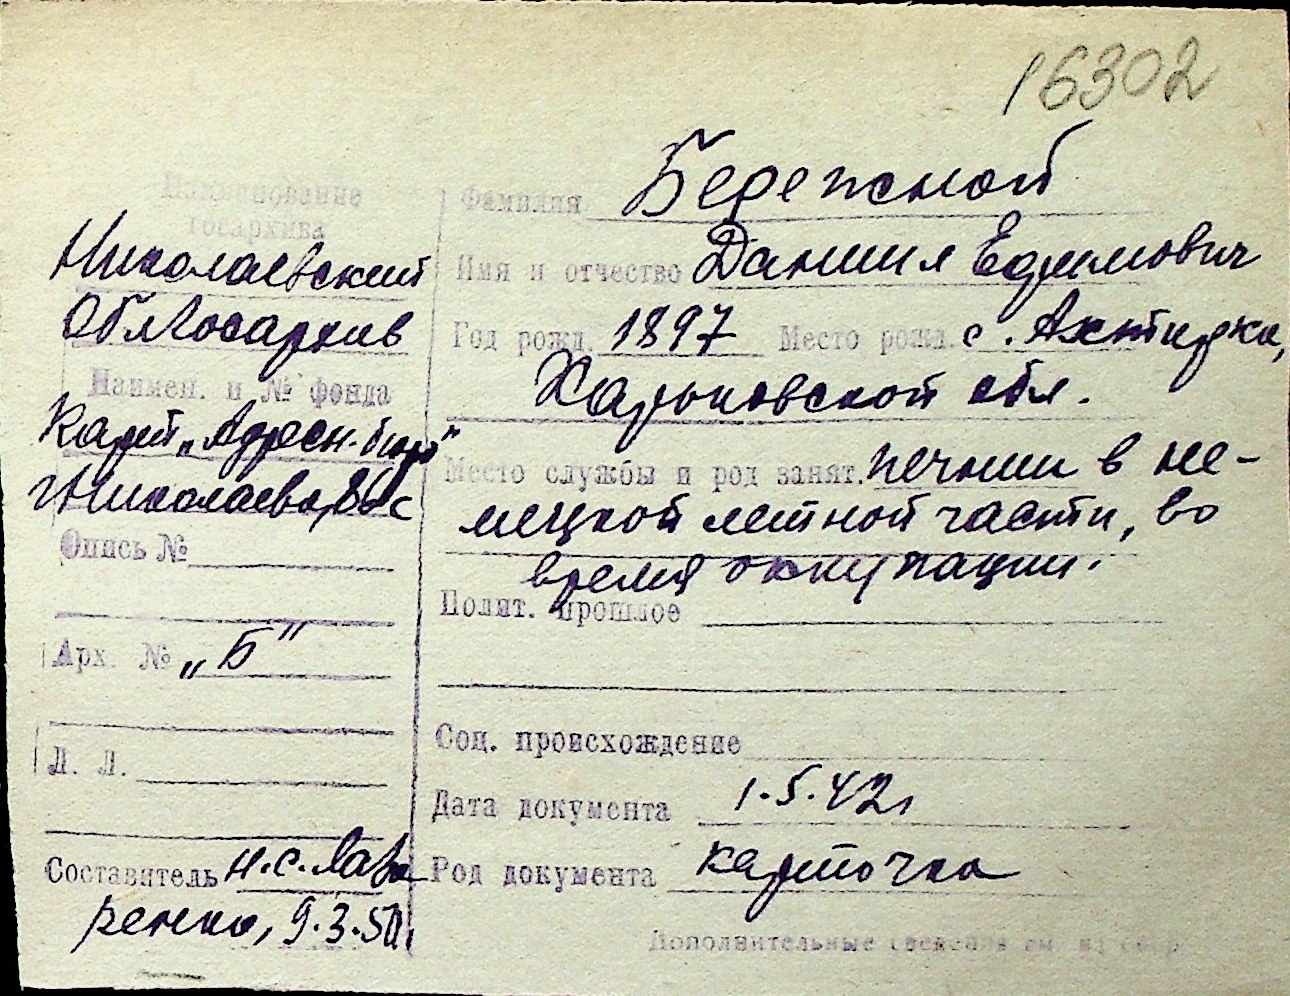 16302
Наименование
госархива
Николаевский
Облгосархив
Наимен. и № фонда
Карт „Адресн. бюро"
г. Николаева,
Опись №
Арх. № „Б"
Л. Л.
Составитель Н.С. Лав
ренко, 9.3.50
Фамилия Бережной
Имя и отчество Даниил Ефимович
Год рожд. 1897 Место рожд. с. Ахтирка,
Харьковской обл.
Место службы и род занят. печник в не-
мецкой летной части, во
время оккупации.
Полит. прошлое
Соц. происхождение
Дата документа 1.5.42
Род документа карточка
Дополнительные сведения см. на обор.